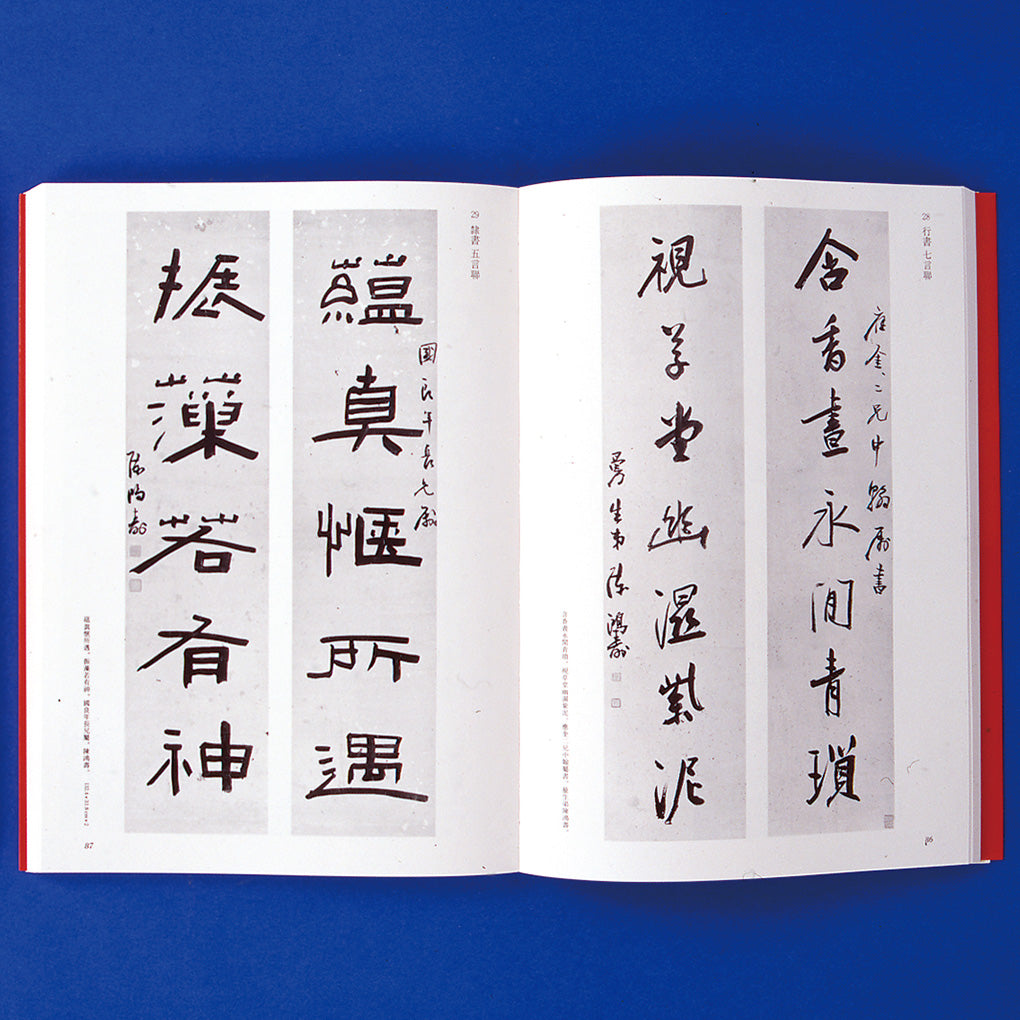 28 行書 七言聯
含香晝永閒青瑣
金二兄中翰屬書
視草堂幽濕紫泥
曼生弟陳鴻壽
含香晝永閒青瑣、視草堂幽濕紫泥、金二兄中翰屬書、曼生弟陳鴻壽。
86
29 隸書 五言聯
蘊真愜所遇
國良年長兄屬
振藻若有神
陳鴻壽
蘊真愜所遇、振藻若有神。國良年長兄屬、陳鴻壽。
87